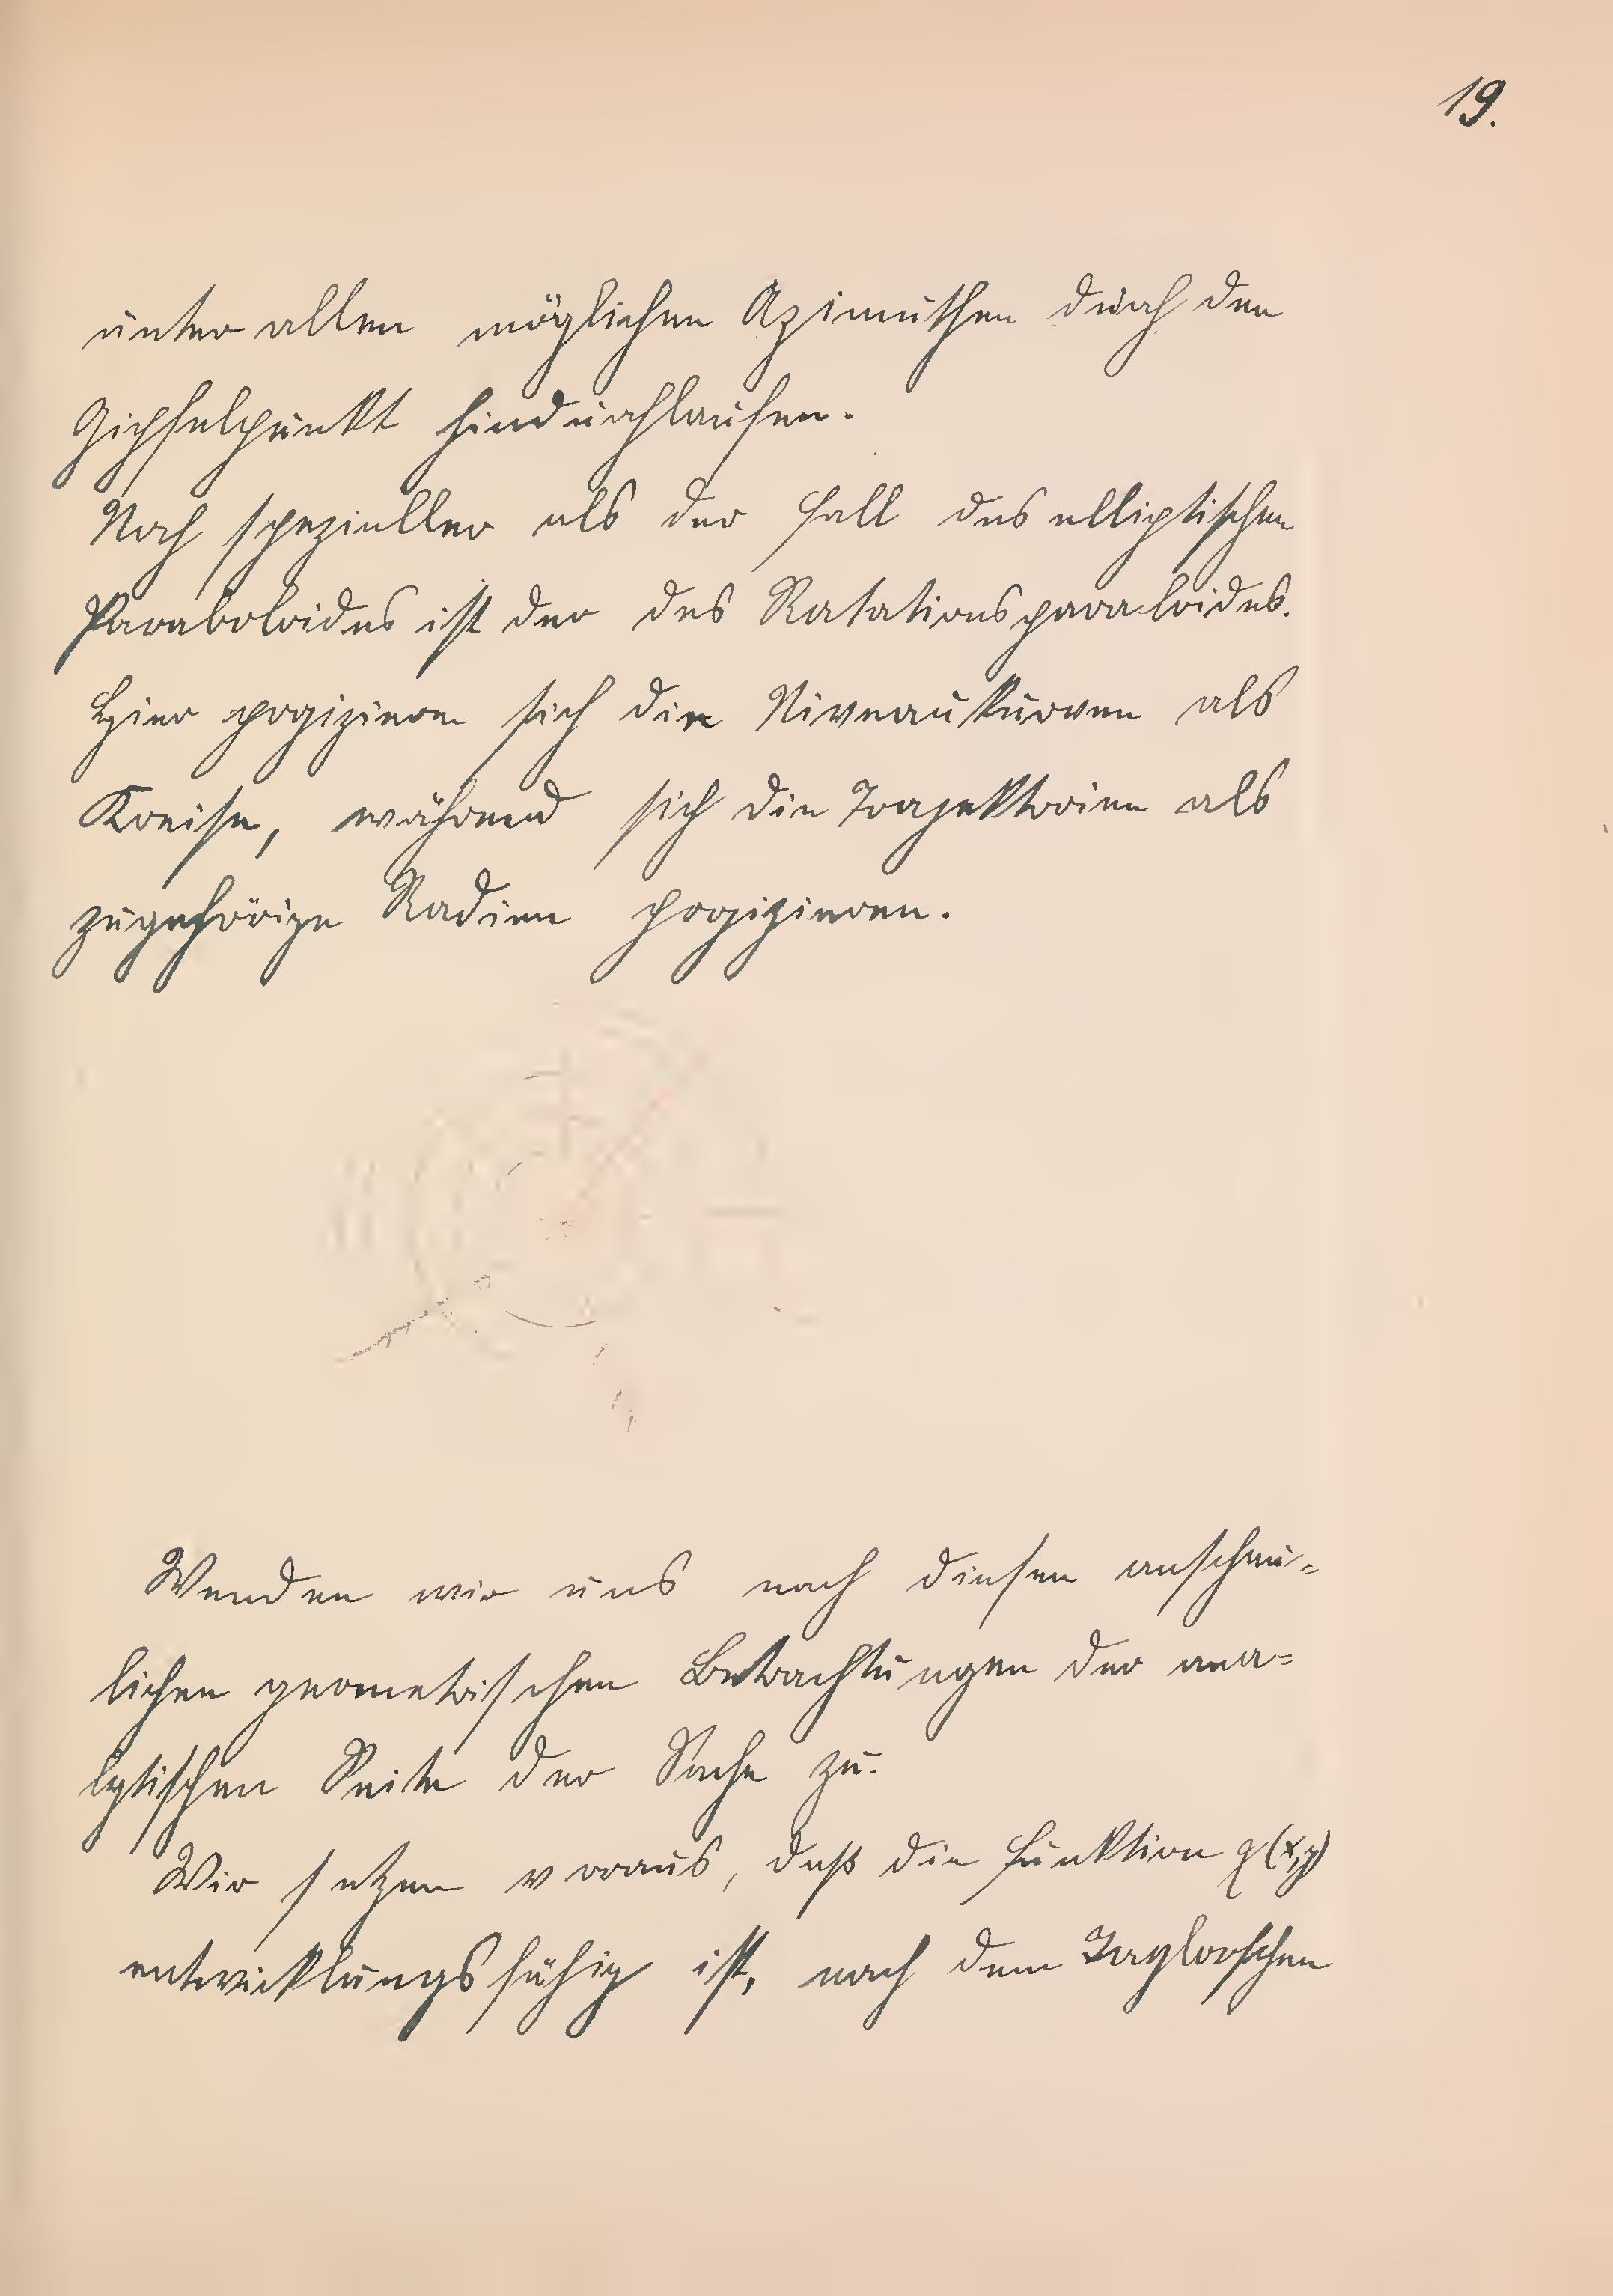 19.
unter allen möglichen Azimuthen durch den
Gipfelpunkt hindurchlaufen.
Noch spezieller als der Fall des elliptischen
Paraboloides ist der des Rotationsparaloides.
Hier projizieren sich die Niveaukurven als
Kreise, während sich die Trajektorien als
zugehörige Radien projizieren.
Wenden wir uns nach diesen anschau-
lichen geometrischen Betrachtungen der ana-
lytischen Seite der Sache zu.
Wir setzen voraus, daß die Funktion φ(x,y)
entwicklungsfähig ist, nach dem Taylorschen